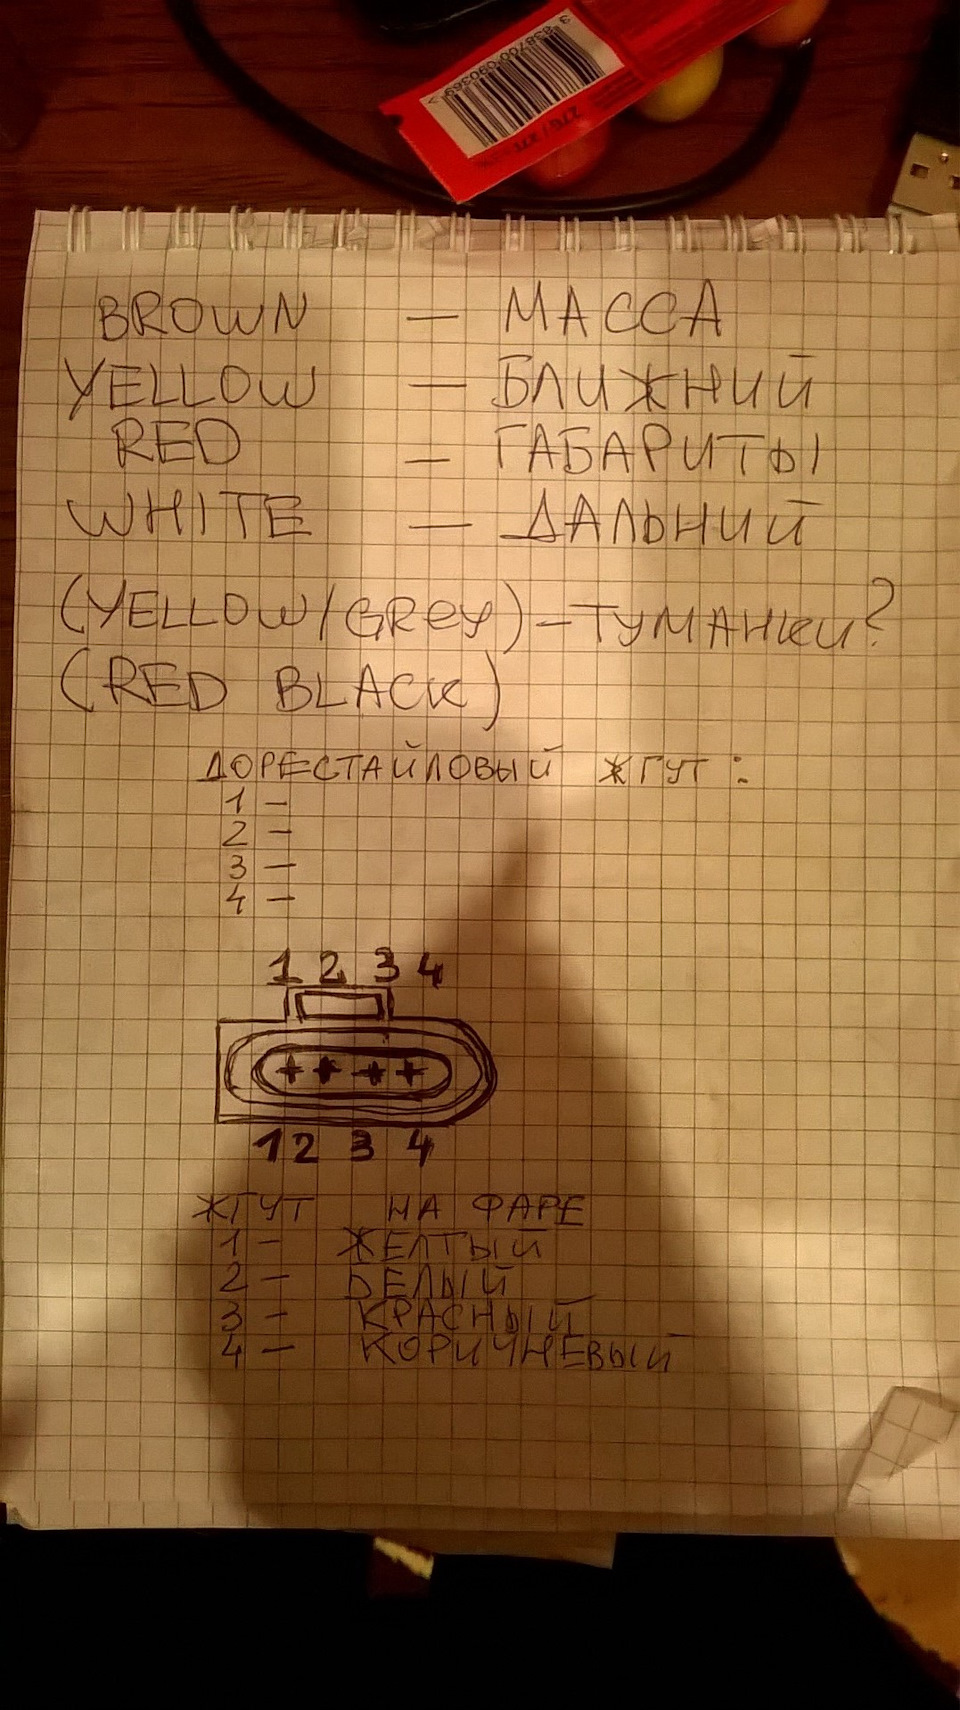 3 838700 090369 >
27G/27
BROWN — МАССА
YELLOW — БЛИЖНИЙ
RED — ГАБАРИТЫ
WHITE — ДАЛЬНИЙ
(YELLOW/GREY) – ТУМАНКИ?
(RED BLACK)
ДОРЕСТАЙЛОВЫЙ ЖГУТ:
1 –
2 –
3 –
4 –
1 2 3 4
+ + + +
1 2 3 4
ЖГУТ НА ФАРЕ
1 – ЖЕЛТЫЙ
2 – БЕЛЫЙ
3 – КРАСНЫЙ
4 – КОРИЧНЕВЫЙ